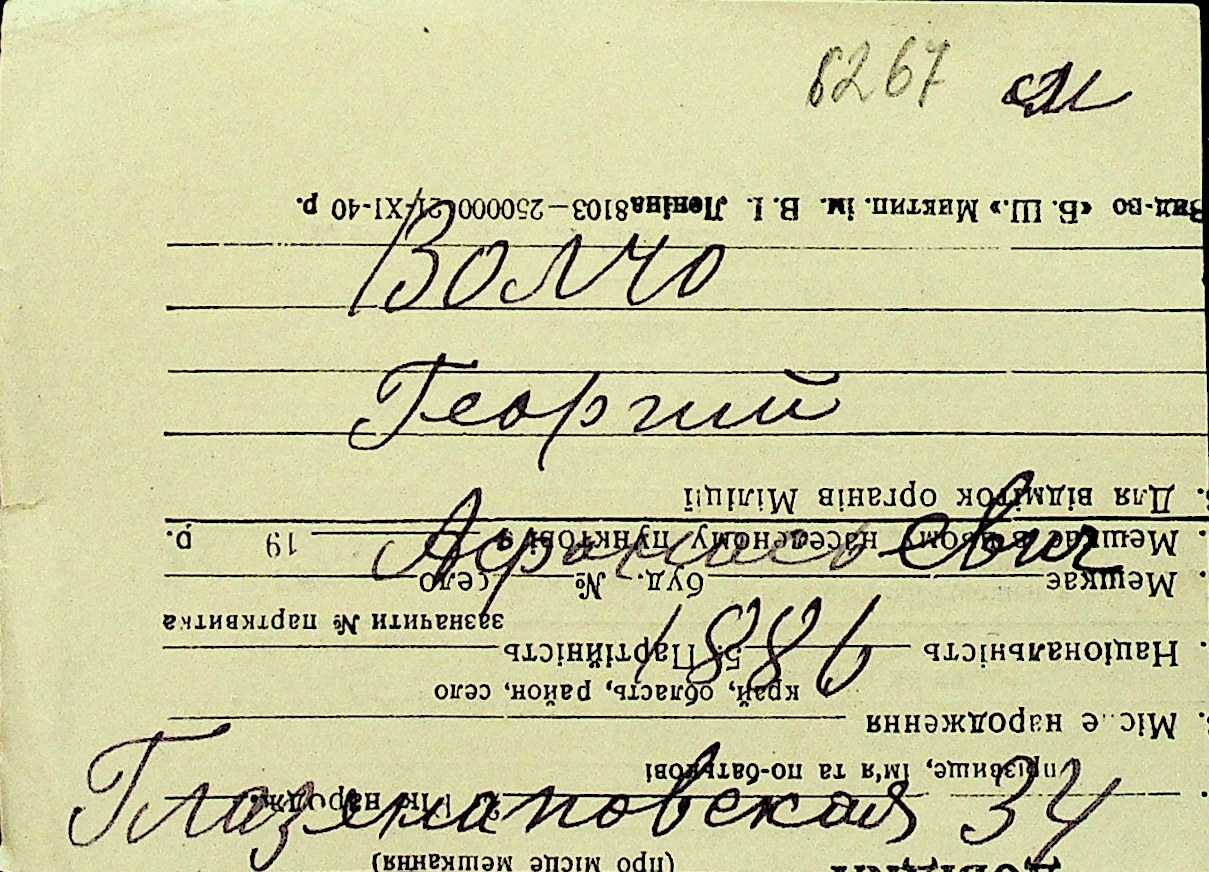 8267
Волчо
Георгий
Афанасьевич
1886
Глазенаповская 34
(про місце мешкання)
Рік народж.
прізвище, ім'я та по-батькові
Місце народження
край, область, район, село
Національність 5. Партійність
зазначити № партквитка
Мешкає буд. № село
Мешкає в цьому населеному пунктові з 19 р.
Для відміток органів Міліції
Вид-во «Б. Ш.» Миктип. ім. В. І. Леніна 8103—250000 21-XI-40 р.